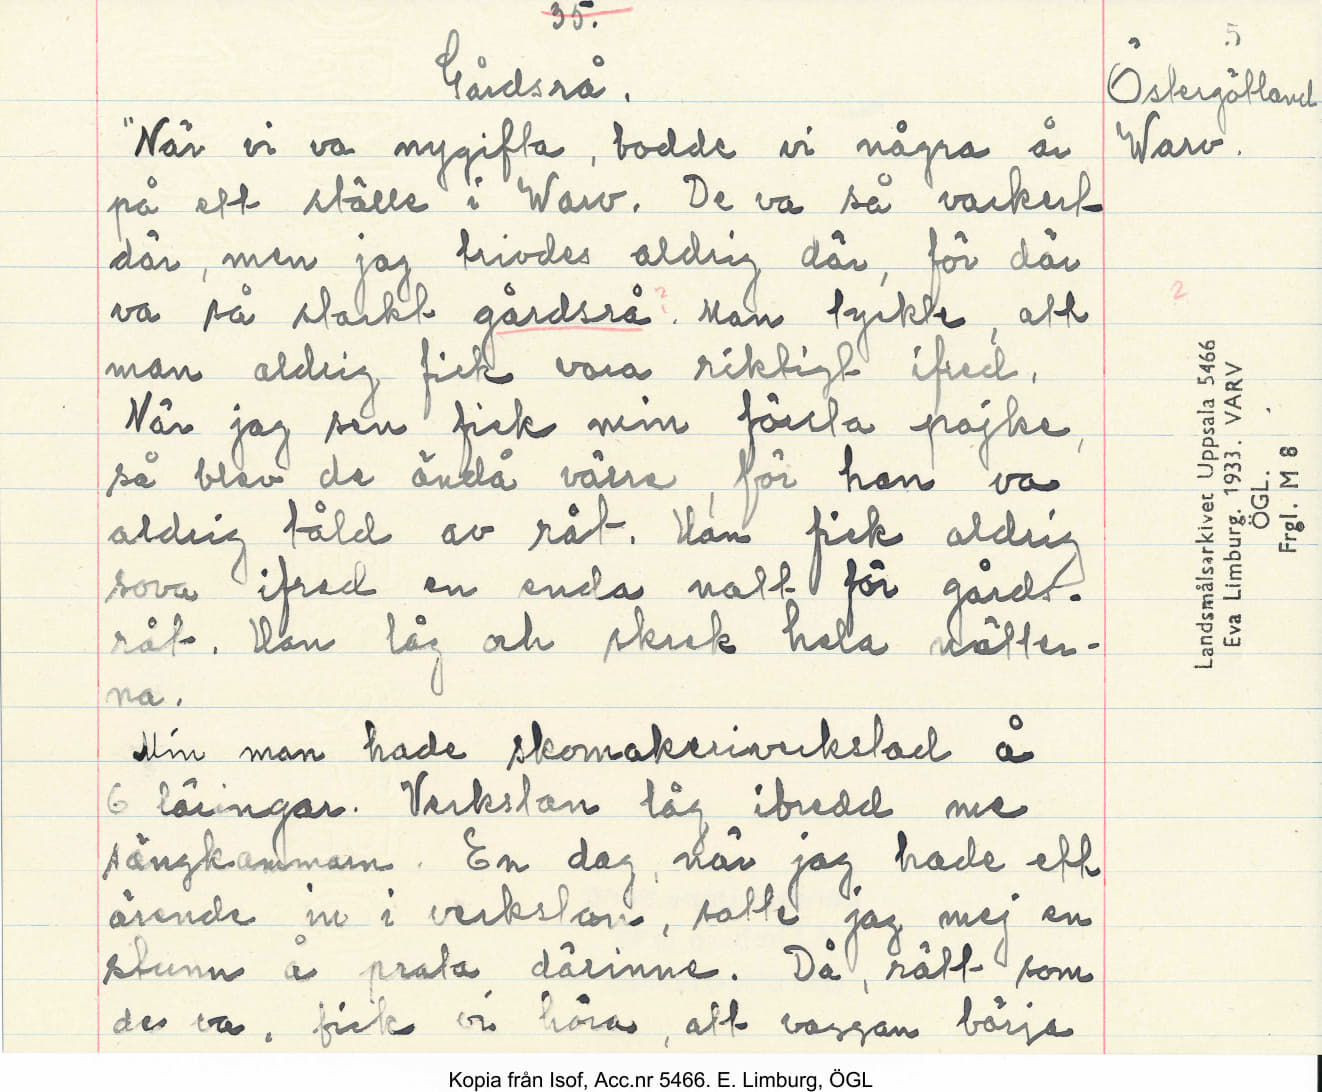 35.
5
Gårdsrå.
Östergötland
Warv.
"När vi va nygifta, bodde vi några år
på ett ställe i Warv. De va så vackert
där, men jag trivdes aldrig där, för där
va så starkt gårdsrå?. Man tyckte, att
2
man aldrig fick vara riktigt ifred.
När jag sen fick min första pojke,
så blev de ändå värre, för han va
aldrig tåld av råt. Han fick aldrig
sova ifred en enda natt för gårds-
råt. Han låg och skrek hela nätter-
na.
Min man hade skomakeriverkstad å
6 läringar. Verkstan låg ibredd me
sängkammarn. En dag, när jag hade ett
ärende in i verkstan, satte jag mej en
stunn å prata därinne. Då, rätt som
de va, fick vi höra, att vaggan börja
Landsmålsarkivet Uppsala 5466
Eva Limburg. 1933. VARV
ÖGL.
Frgl. M 8
Kopia från Isof, Acc.nr 5466. E. Limburg, ÖGL